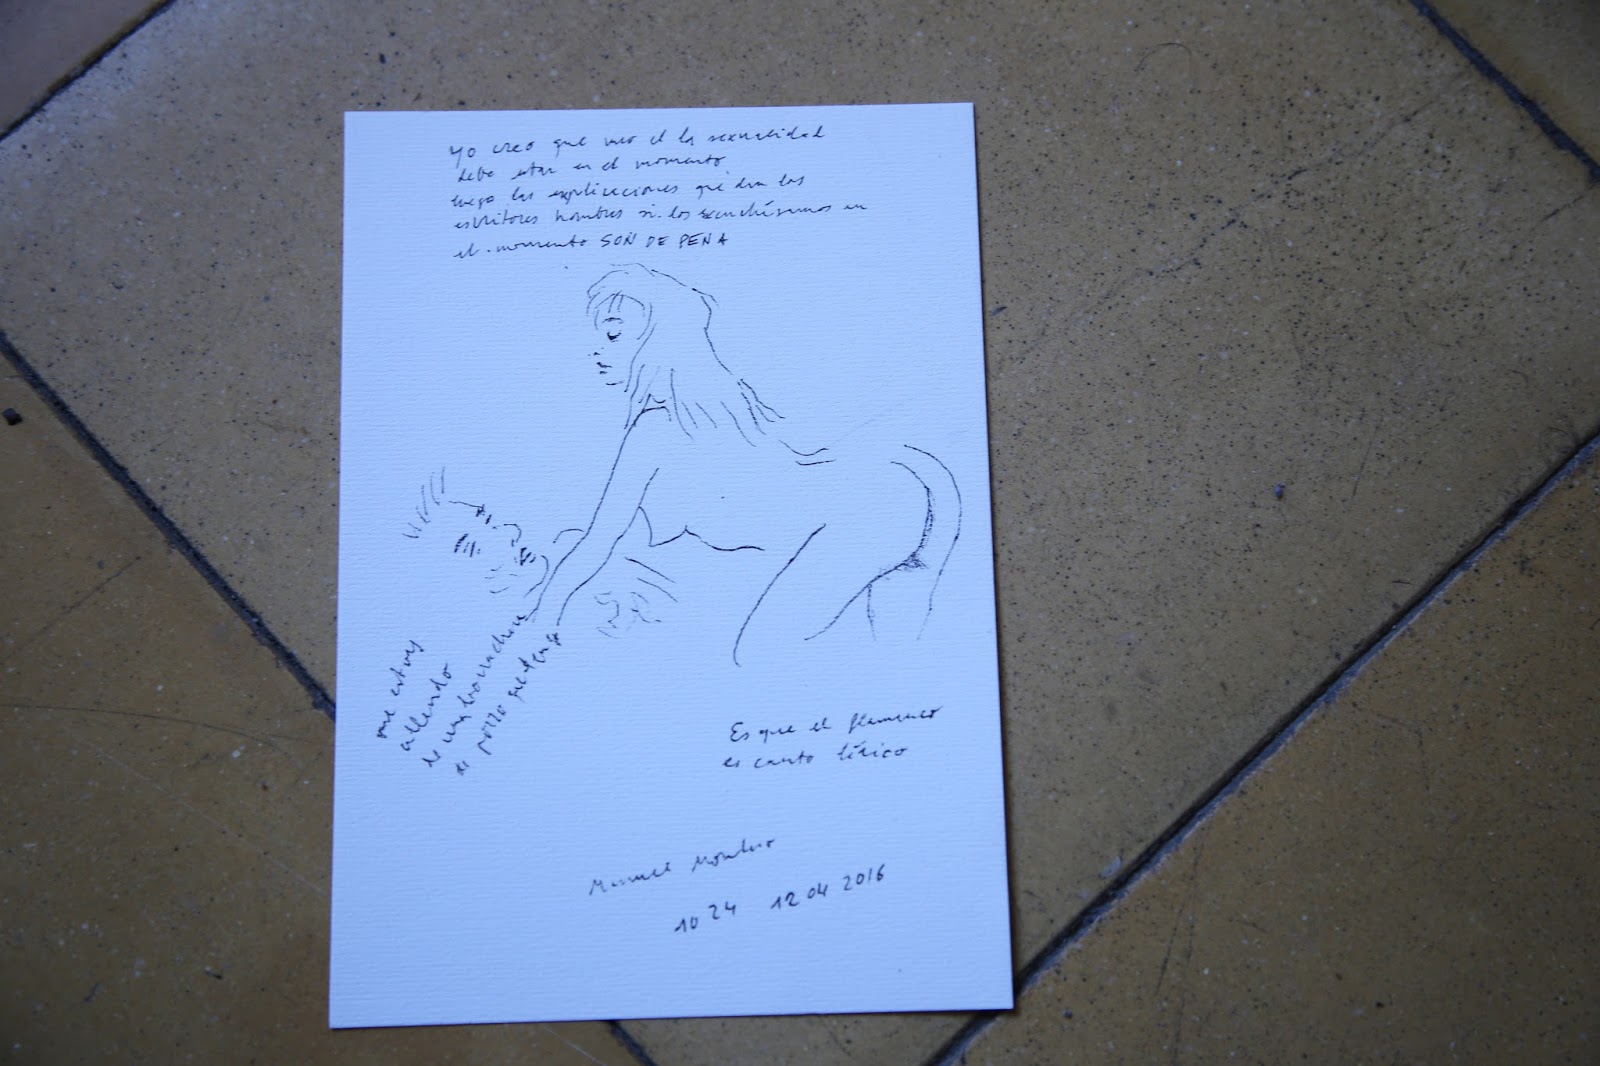 Yo creo que uso el la sexualidad
debe estar en el momento
luego las explicaciones que dan los
escritores hombres si los escuchÃ¡semos en
el momento SON DE PENA
me estoy
de una borrachera
de que tengo
Es que el flamenco
es canto lÃ­rico
Manuel Montero
10 24 12 04 2016